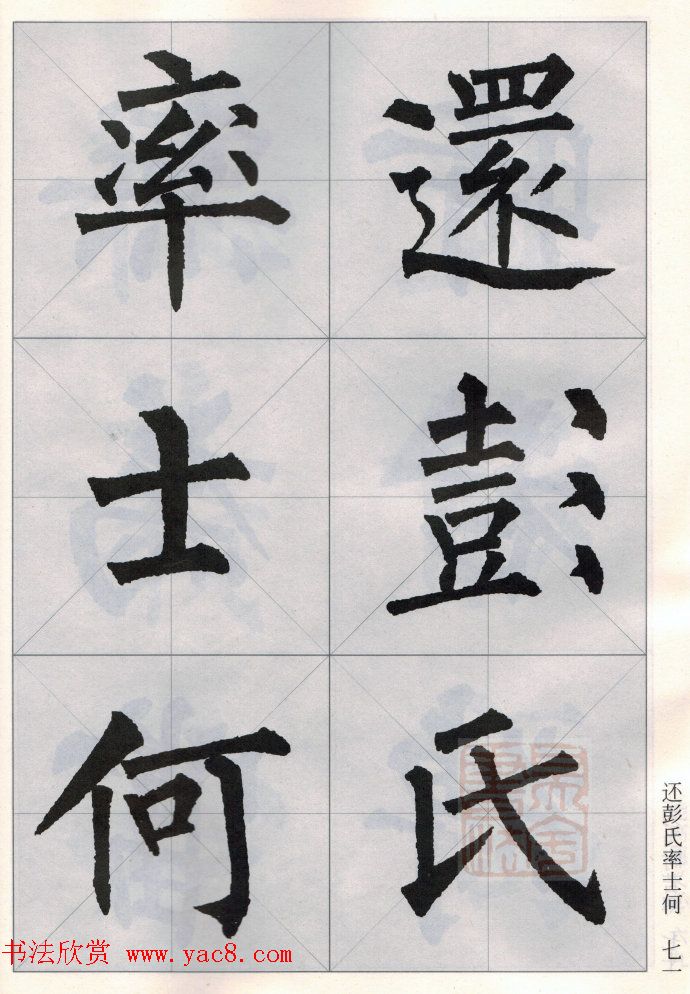 還彭氏
率士何
还彭氏率士何 七一
书法欣赏 www.yac8.com